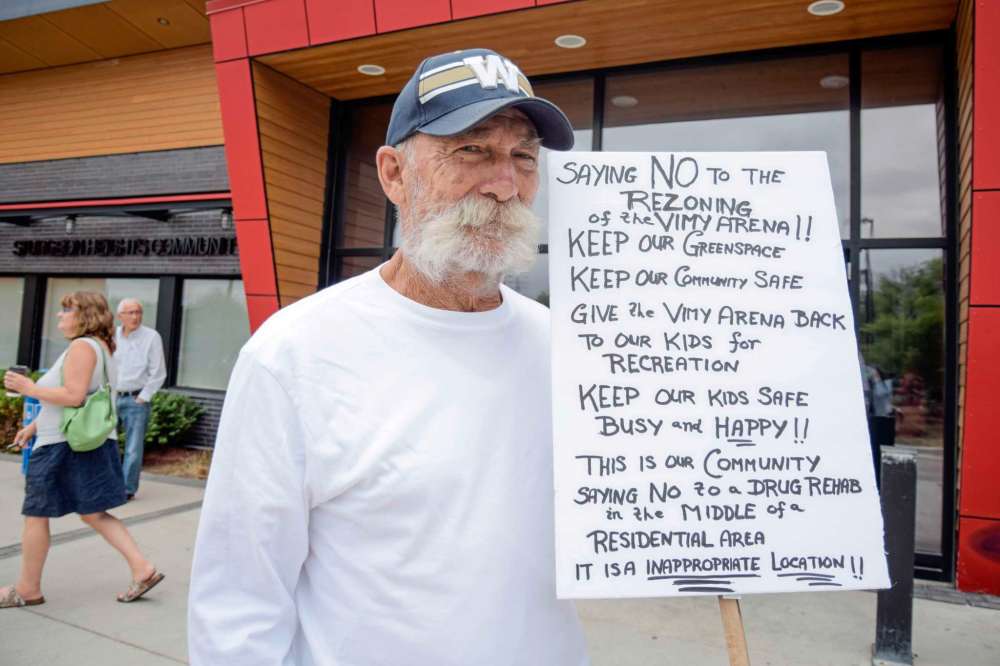 W
STURGEON HEIGHTS COMMUNI
SAYING NO TO THE
REZONING
of the VIMY ARENA!!
KEEP OUR GREENSPACE
KEEP OUR COMMUNITY SAFE
GIVE the VIMY ARENA BACK
TO OUR KIDS for
RECREATION
KEEP OUR KIDS SAFE
BUSY and HAPPY!!
THIS IS OUR COMMUNITY
SAYING NO to a DRUG REHAB
in the MIDDLE of a
RESIDENTIAL AREA
IT IS A INAPPROPRIATE LOCATION!!